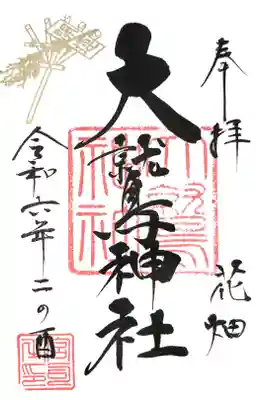 奉拝 花畑
大鷲神社
令和六年二の酉